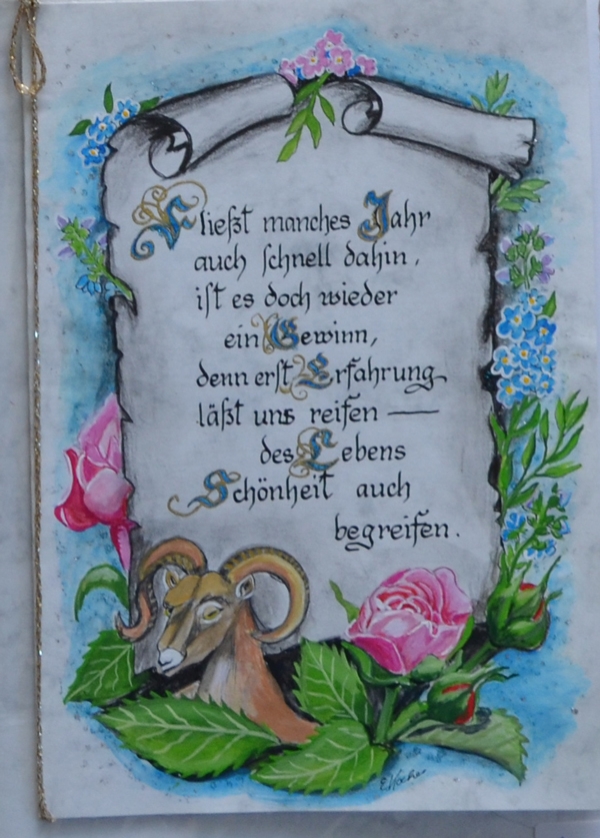 Fließt manches Jahr
auch schnell dahin,
ist es doch wieder
ein Gewinn,
denn erst Erfahrung
läßt uns reifen —
des Lebens
Schönheit auch
begreifen.